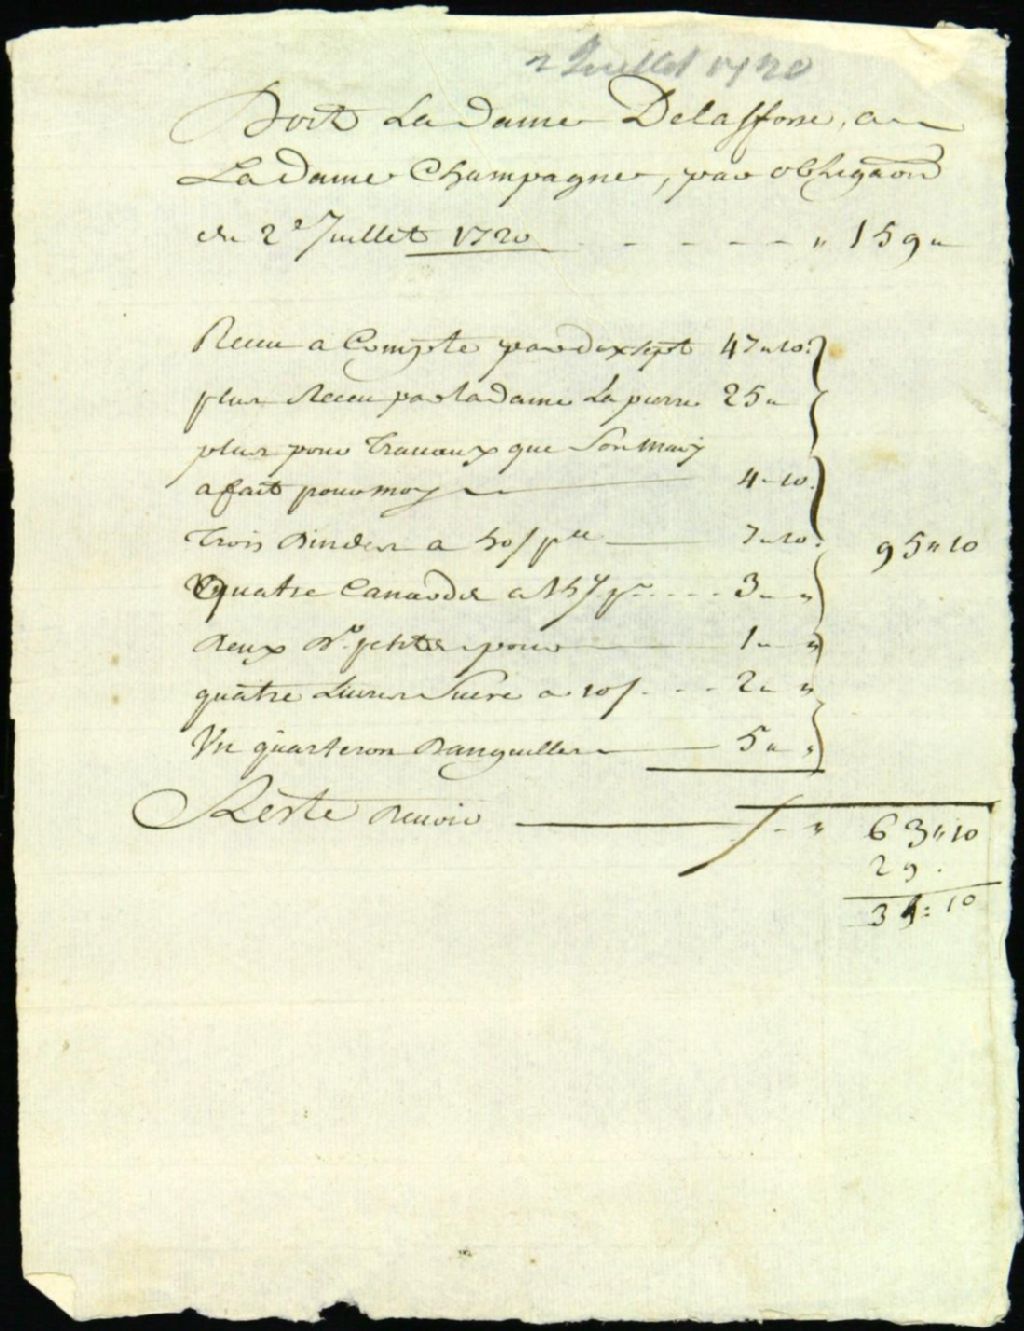 2 Juillet 1720
Doit La Dame Delassone, a
La Dame Champagne, par obligaōn
du 2e Juillet 1720 - - - - - " 159 "
Receu a Compte par 47 " 10
plus Receu par la dame La pierre 25 "
plus pour Travaux que Son mary
a fait pour moy 4 - 10
Trois Dindes a 50s pce 7 - 10
95 " 10
Quatre Canardes a 15s pce - - - - 3 - "
Deux Do petites pour 1 - "
quatre Livres Sucre a 10s - - - 2 " "
Un quarteron Danguilles 5 " "
Reste Devoir - " 63 " 10
29 .
34 = 10